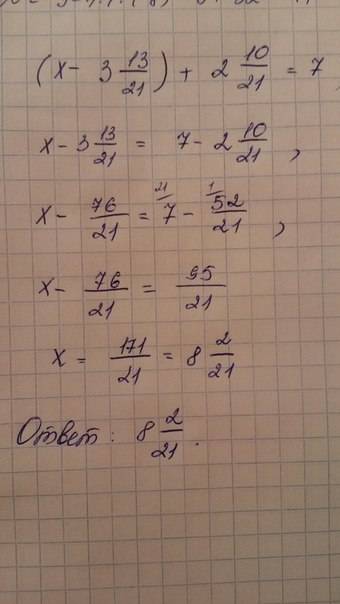 (x - 3 13/21) + 2 10/21 = 7,
x - 3 13/21 = 7 - 2 10/21,
x - 76/21 = 21/ 7 - 1/ 52/21,
x - 76/21 = 95/21
x = 171/21 = 8 2/21
Ответ: 8 2/21.